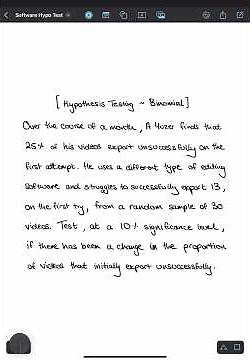 Software Hypo Test
[ Hypothesis Testing ~ Binomial ]
Over the course of a month, A 4uzer finds that
25% of his videos export unsuccessfully on the
first attempt. He uses a different type of editing
software and struggles to successfully export 13,
on the first try, from a random sample of 30
videos. Test, at a 10% significance level,
if there has been a change in the proportion
of videos that initially export unsuccessfully.